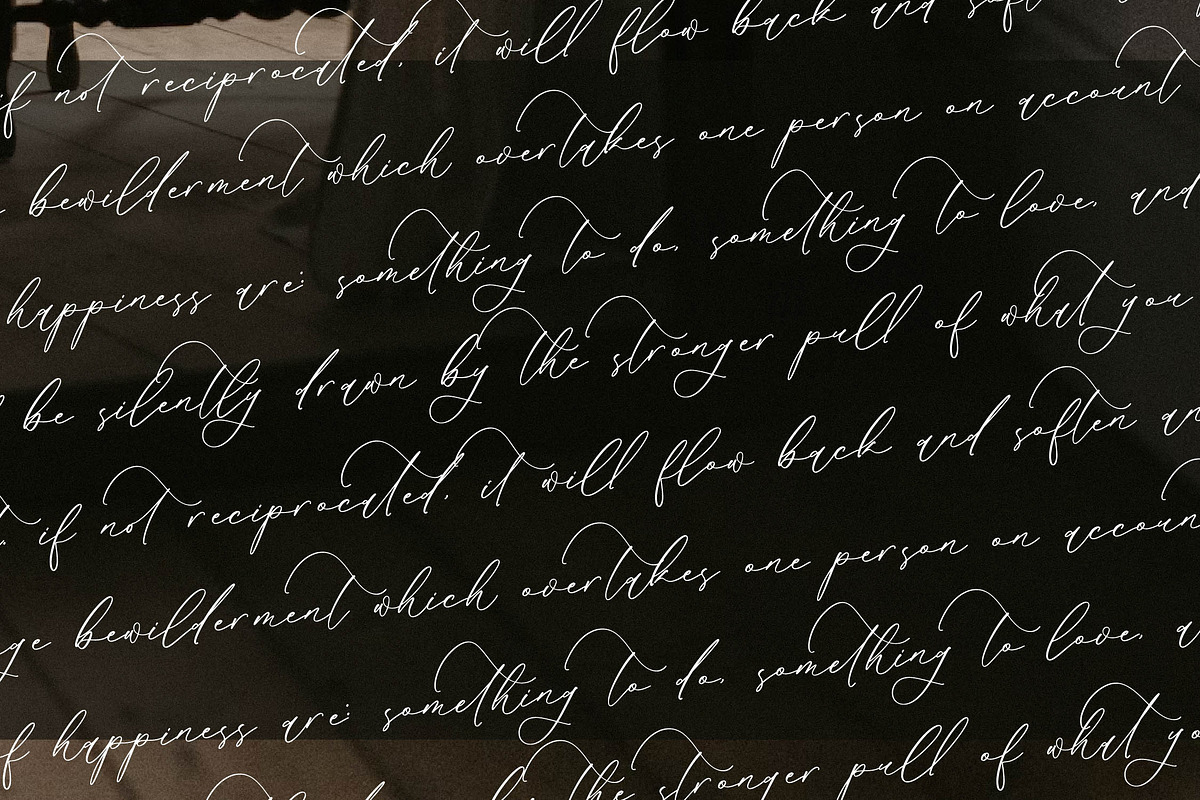 if not reciprocated, it will flow back and soft
bewilderment which overtakes one person on account
happiness are: something to do, something to love, and
be silently drawn by the stronger pull of what you
if not reciprocated, it will flow back and soften an
ge bewilderment which overtakes one person on accoun
f happiness are: something to do, something to love, a
the stronger pull of what yo